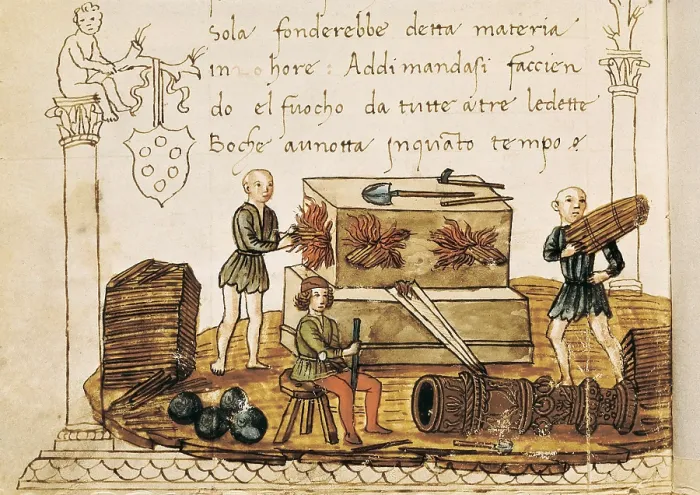 sola fonderebbe detta materia
in 20 hore : Addimandasi faccien
do el fuocho da tutte a tre le dette
Boche aunotta inquāto tempo e